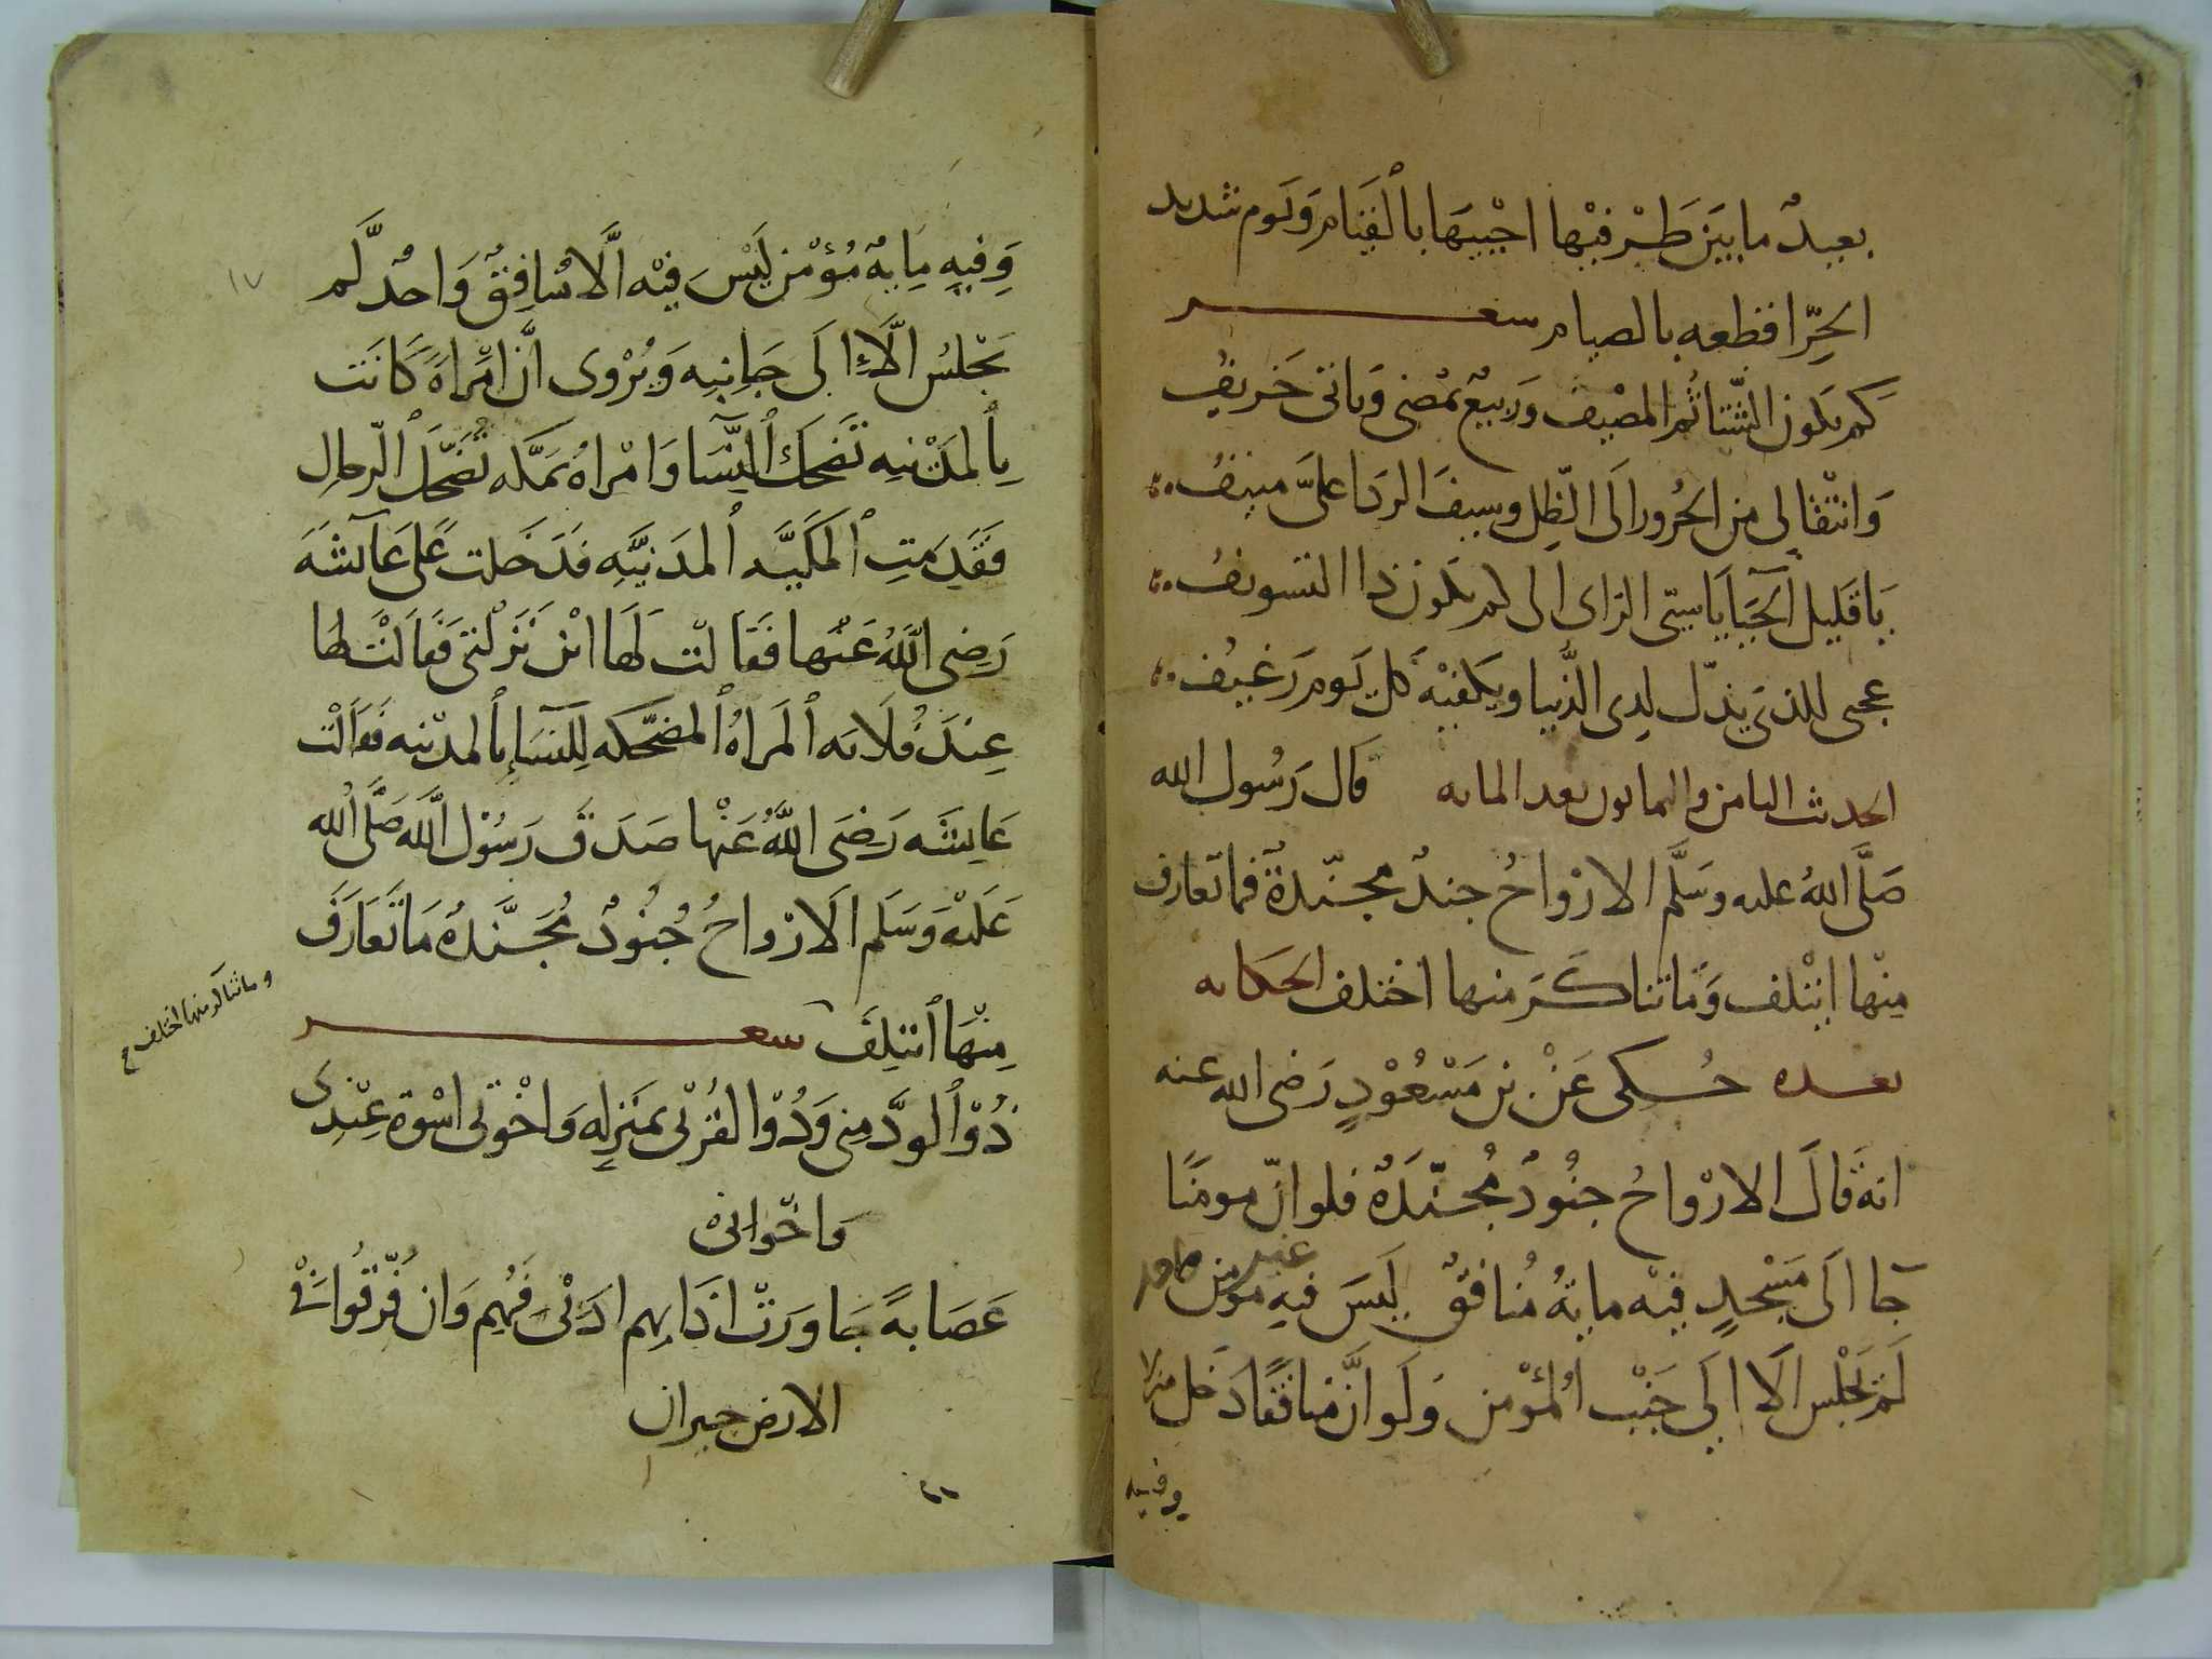 بعيدٌ ما بَيَن طَرْفَيْها احْيِيهَا بالقيَام وَيَوم شديد
الحَرِّ اقطعه بالصيام شعر
كم يَكون الشّتا ثُم المصْيف وَربيعٌ يمْضي وَياتى خَريفُ
وَانتْقالى من الحُرور الَى الظِل وسيفَ الردَا علىَّ منيفُ
يَا قَليل الحَيَا يَا سيّى الراى الى كم يَكون ذا التسويفُ
عجبى للذى يَذلّ لِدى الدُّنيا ويَكفيْه كل يَوم رَغيْف
الحديث الثامن والثمانون بعد المائه قَال رَسُول الله
صَلَّى اللهُ عليه وسَلَّم الارْواحُ جندٌ مجنّدةٌ فما تعارف
مِنْها ايْتَلف وَمَا تناكَرَ منها اختلف الحكايه
بعده حُكى عَنْ بن مَسْعُوْدٍ رَضى الله عنه
انهُ قَالَ الارْواحُ جنُودٌ مُجنّدَةٌ فلو انّ مومنًا
جا الَى مَسْجدٍ فيْه مايةُ مُنافقٌ لَيسَ فيهِ غير مؤمن واحد
لَمْ يَجْلس الَّا الَى جَنْب المُؤْمن وَلَو انَّ مُنافقًا دَخل منزلا
وفيه
وَفيهِ مِايهُ مُؤْمن لَيْسَ فيْه الَّا مُنافِقٌ وَاحدٌ لَّم
يَجْلسُ الَّا الَى جَانِبِه وَيُرْوى انَّ امْراةً كَانَت
بِالمدْينِه تضَحك النِّسَا وَامْراةٌ بمَكَّه تُضَحّك الرّجال
فَقَدِمَتِ المكَيَّه المدَنِيَّهِ فدَخَلت عَلى عَآئشَه
رَضِى اللهُ عَنْها فَقَالتْ لَها ايْن نَزَلْتى فَقَالتْ لها
عِندَ فُلَانه المَراهُ المضحَّكه لِلنسَا بالمدْينه فَقَالَتْ
عَايشَه رَضِىَ اللهُ عَنْها صَدَقَ رَسُوْل الله صَلَّى الله
عَليْه وَسَلم الارْواحُ جُنُودٌ مُجَنَّدةٌ مَا تَعَارَفَ
مِنْهَا ائتلِفَ شعر
وما تناكر منها اختلف صح
ذُوْا الودّ منى وَذُوْا القُرْبى بمنَزلِه وَاخْوتى اسْوة عِنْدى
وَاخْوانى
عَصَابهً جَاورَتْ ادَابهم ادَبى فَهُم وَان فُرّقُوا فى
الارض جيران